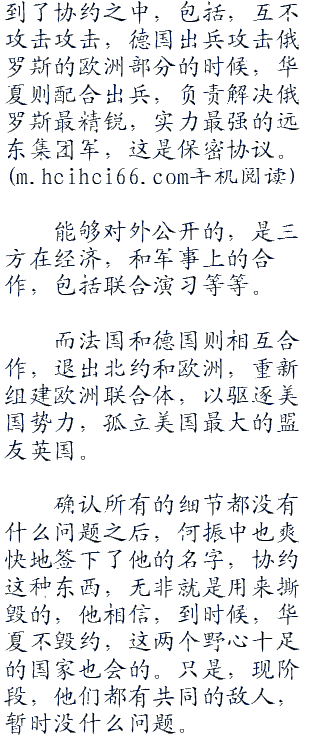 到了协约之中，包括，互不
攻击攻击，德国出兵攻击俄
罗斯的欧洲部分的时候，华
夏则配合出兵，负责解决俄
罗斯最精锐，实力最强的远
东集团军，这是保密协议。
(m.hcihci66.com手机阅读)
能够对外公开的，是三
方在经济，和军事上的合
作，包括联合演习等等。
而法国和德国则相互合
作，退出北约和欧洲，重新
组建欧洲联合体，以驱逐美
国势力，孤立美国最大的盟
友英国。
确认所有的细节都没有
什么问题之后，何振中也爽
快地签下了他的名字，协约
这种东西，无非就是用来撕
毁的，他相信，到时候，华
夏不毁约，这两个野心十足
的国家也会的。只是，现阶
段，他们都有共同的敌人，
暂时没什么问题。